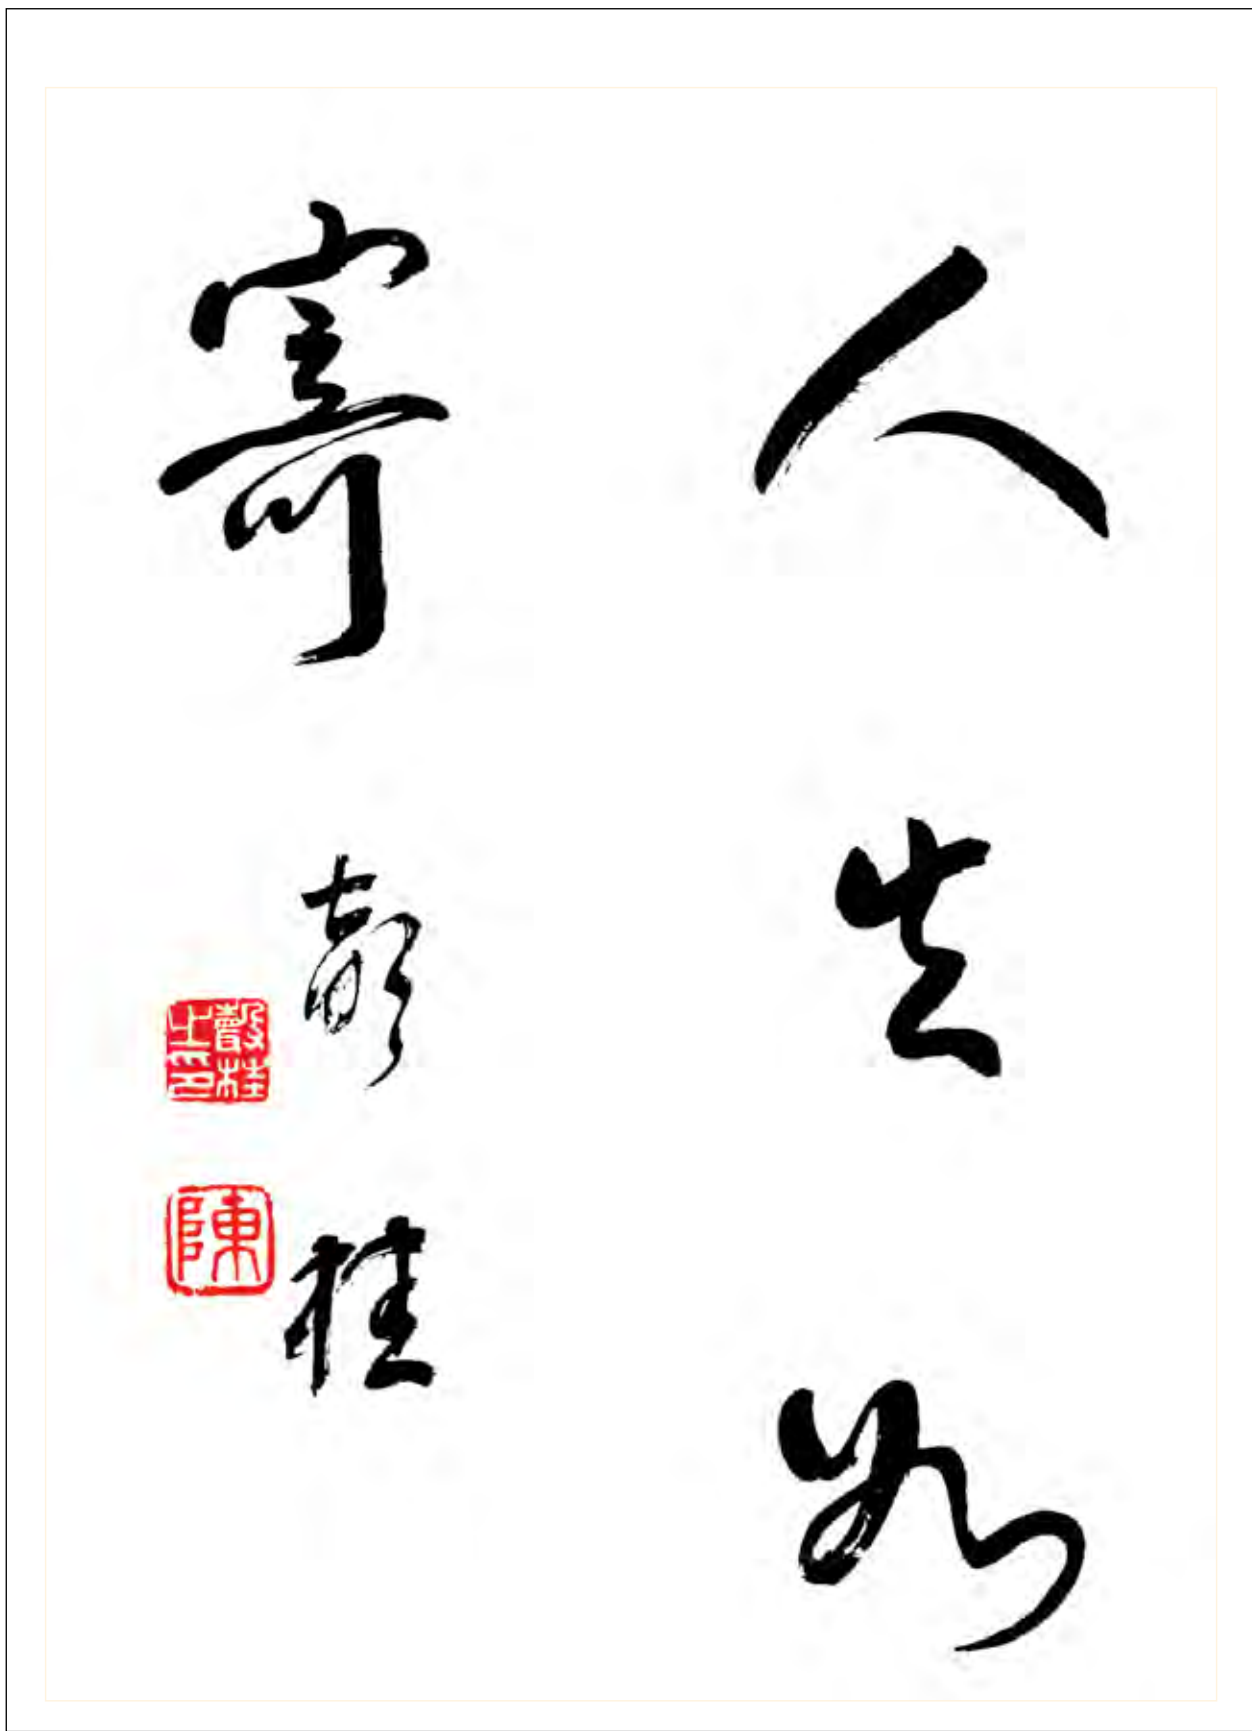 人生如
寄
桂
桂之印
陳